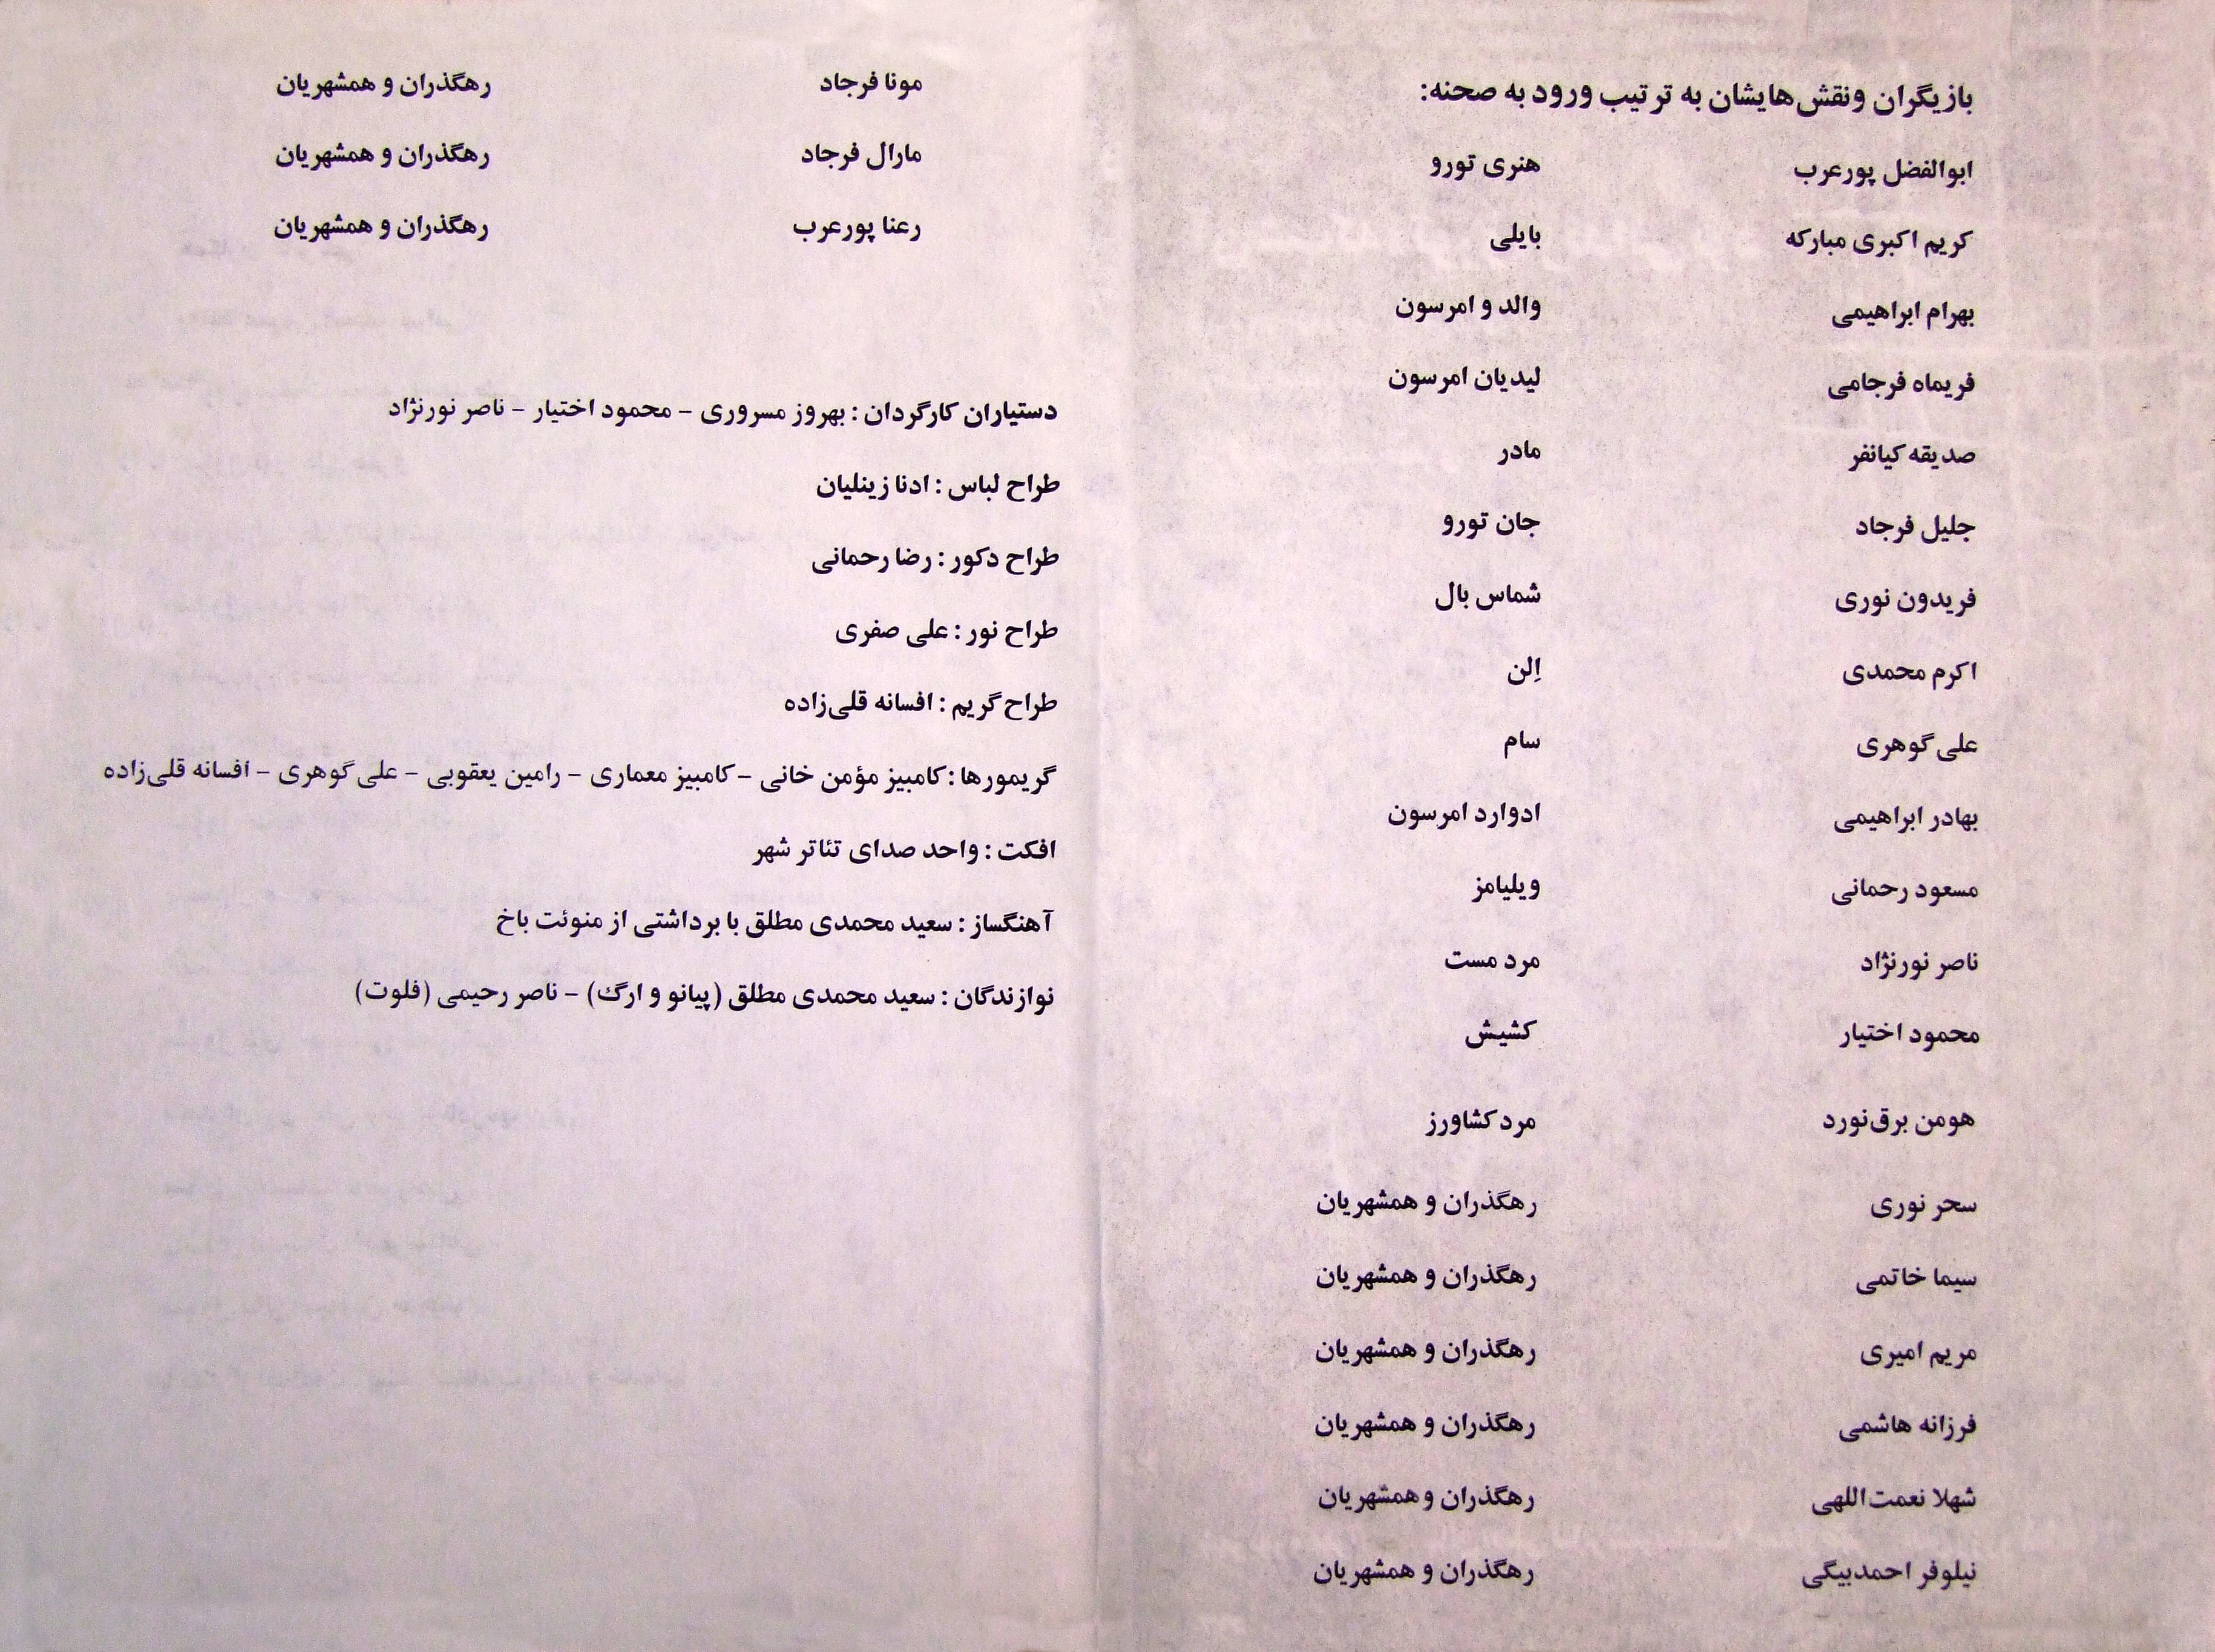 بازیگران ونقش‌هایشان به ترتیب ورود به صحنه:
ابوالفضل پورعرب هنری تورو
کریم اکبری مبارکه بایلی
بهرام ابراهیمی والد و امرسون
فریماه فرجامی لیدیان امرسون
صدیقه کیانفر مادر
جلیل فرجاد جان تورو
فریدون نوری شماس بال
اکرم محمدی اِلن
علی گوهری سام
بهادر ابراهیمی ادوارد امرسون
مسعود رحمانی ویلیامز
ناصر نورنژاد مرد مست
محمود اختیار کشیش
هومن برق‌نورد مرد کشاورز
سحر نوری رهگذران و همشهریان
سیما خاتمی رهگذران و همشهریان
مریم امیری رهگذران و همشهریان
فرزانه هاشمی رهگذران و همشهریان
شهلا نعمت‌اللهی رهگذران و همشهریان
نیلوفر احمدبیگی رهگذران و همشهریان
مونا فرجاد رهگذران و همشهریان
مارال فرجاد رهگذران و همشهریان
رعنا پورعرب رهگذران و همشهریان
دستیاران کارگردان : بهروز مسروری – محمود اختیار – ناصر نورنژاد
طراح لباس : ادنا زینلیان
طراح دکور : رضا رحمانی
طراح نور : علی صفری
طراح گریم : افسانه قلی‌زاده
گریمورها : کامبیز مؤمن خانی – کامبیز معماری – رامین یعقوبی – علی گوهری – افسانه قلی‌زاده
افکت : واحد صدای تئاتر شهر
آهنگساز : سعید محمدی مطلق با برداشتی از منوئت باخ
نوازندگان : سعید محمدی مطلق (پیانو و ارگ) – ناصر رحیمی (فلوت)